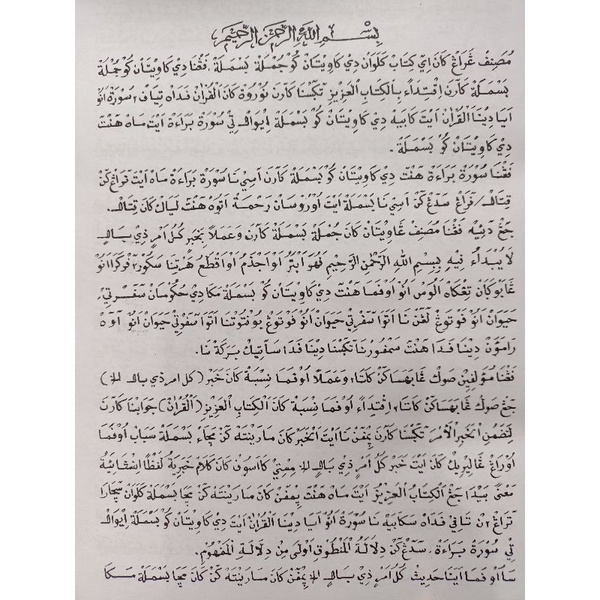 بِسْمِ اللهِ الرَّحْمٰنِ الرَّحِيْمِ
مُصَنِفْ غَرَاغْ كَانْ اِيْ كِتَابْ كَلَوَانْ دِيْ كَاوِيْتَانْ كُوْ جُمْلَةْ بَسْمَلَةْ. فَغْنَا دِيْ كَاوِيْتَانْ كُوْ جُمْلَةْ
بَسْمَلَةْ كَارَنْ اِقْتِدَاءً بِالْكِتَابِ الْعَزِيْزِ تَكْسْنَا كَارَنْ نُوْرُوْةْ كَانْ الْقُرْاٰنْ فَدَاهْ تِيَافْ٢ سُوْرَةْ اَنُوْ
اَيَا دِيْنَا الْقُرْاٰنْ اَيْتْ كَابَيْهْ دِيْ كَاوِيْتَانْ كُوْ بَسْمَلَةْ اِيْوَالْ تِيْ سُوْرَةْ بَرَاءَةْ اَيْتْ مَاهْ هَنْتْ
دِيْ كَاوِيْتَانْ كُوْ بَسْمَلَةْ.
فَغْنَا سُوْرَةْ بَرَاءَةْ هَنْتْ دِيْ كَاوِيْتَانْ كُوْ بَسْمَلَةْ كَارَنْ اَسِيْ نَا سُوْرَةْ بَرَاءَةْ مَاهْ اَيْتْ فَرَاغْ كَنْ
قِتَالْ / فَرَاغْ سَدَغْ كَنْ اَسِيْ نَا بَسْمَلَةْ اَيْتْ اُوْرُوْسَانْ رَحْمَةْ اَتَوَهْ هَنْتْ لِيَانْ كَانْ قِتَالْ.
جَغْ دَيْئِهْ فَغْنَا مُصَنِفْ غَاوِيْتَانْ كَانْ جُمْلَةْ بَسْمَلَةْ كَارَنْ وَعَمَلًا بِخَبَرِ كُلُّ اَمْرٍ ذِيْ بَالٍ
لَا يُبْدَاُ فِيْهِ بِبِسْمِ اللهِ الرَّحْمٰنِ الرَّحِيْمِ فَهُوَ اَبْتَرُ اَوْ اَجْذَمُ اَوْ اَقْطَعُ هَرْتِنَا سَكُوْر٢ فَرْكَرَا اَنُوْ
غَابُوْكَانْ تِغْكَاهْ اَلُوْسْ اَنُوْ اُوْفَمَا هَنْتْ دِيْ كَاوِيْتَانْ كُوْ بَسْمَلَةْ مَكَا دِيْ حُكُوْمَانْ سَفَرْتِيْ
حَيَوَانْ اَنُوْ فُوْتُوْغْ لَغْنْ نَا اَتَوَا سَفَرْتِيْ حَيَوَانْ اَنُوْ فُوْتُوْغْ بُوْنْتُوْتْنَا اَتَوَا سَفَرْتِيْ حَيَوَانْ اَنُوْ اَوَهْ
رَامُوْنْ دِيْنَا فَدَاهَنْتْ مَجْفُوْرْنَا تَكْسْنَا دِيْنَا فَدَا سَاْتِيْكْ بَرَكَةْ نَا.
فَغْنَا مُؤَلِفِيْنْ صُوْكْ غَابَهَسَاكَنْ كَلِمَا؛ وَعَمَلًا اُوْفَمَا نِسْبَةْ كَانْ خَبَرْ (كُلُّ اَمْرٍ ذِيْ بَالٍ الخ)
جَغْ صُوْكْ غَابَهَسَاكَنْ كَاتَا؛ اِقْتِدَاءً اُوْفَمَا نِسْبَةْ كَانْ الْكِتَابِ الْعَزِيْزِ (الْقُرْاٰنْ) جَوَابْنَا كَارَنْ
لِتَضَمُّنِ الْخَبَرِ الْاَمْرَ تَكْسْنَا كَارَنْ يِمْفَنْ نَا اَيْتْ الْخَبَرْ كَانْ مَارِيْنْتَهْ كَنْ مَجَاءْ بَسْمَلَةْ سَبَابْ اُوْفَمَا
اُوْرَاغْ غَالِيْرِيْكْ كَانْ اَيْتْ خَبَرْ كُلُّ اَمْرٍ ذِيْ بَالٍ الخ مَسْتِيْ كَاسُوْفْ كَانْ كَلَامْ خَبَرِيَّةْ لَفْظًا اِنْشَائِيَّةْ
مَعْنًى بَيْدَا جَغْ الْكِتَابُ الْعَزِيْزْ اَيْتْ مَاهْ هَنْتْ يِمْفَنْ كَانْ مَارِيْنْتَهْ كَنْ مَجَا بَسْمَلَةْ كَلَوَانْ سَچَارَا
تَرَاغْ٢ نْ تَافِيْ فَدَاهْ سَكَابَيْهْ نَا سُوْرَةْ اَنُوْ اَيَا دِيْنَا الْقُرْاٰنْ اَيْتْ دِيْ كَاوِيْتَانْ كُوْ بَسْمَلَةْ اِيْوَالْ
تِيْ سُوْرَةْ بَرَاءَةْ. سَدَغْ كَنْ دِلَالَةُ الْمَنْطُوْقِ اَوْلٰى مِنْ دِلَالَةِ الْمَفْهُوْمِ.
سَااُوْفَمَا اَيْنَا حَدِيْثْ كُلُّ اَمْرٍ ذِيْ بَالٍ الخ يِمْفَنْ كَانْ مَارِيْنْتَهْ كَنْ كَانْ مَجَا بَسْمَلَةْ مَكَا